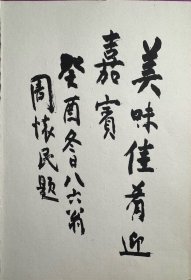 美味佳肴迎
嘉賓
癸酉冬日八六翁
周懷民題